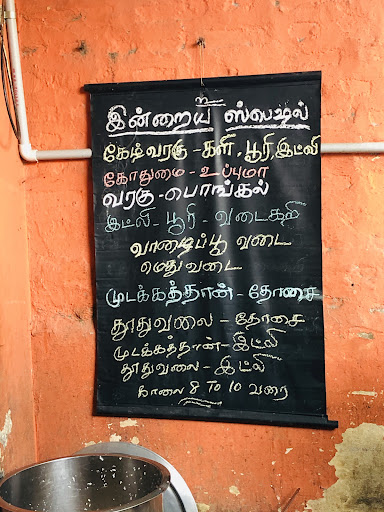 உ
இன்றைய ஸ்பெஷல்
கேழ்வரகு - களி, பூரி, இட்லி
கோதுமை - உப்புமா
வரகு - பொங்கல்
இட்லி - பூரி - வடைகறி
வாழைப்பூ வடை
மெதுவடை
முடக்கத்தான் - தோசை
தூதுவலை - தோசை
முடக்கத்தான் - இட்லி
தூதுவலை - இட்லி
காலை 8 TO 10 வரை